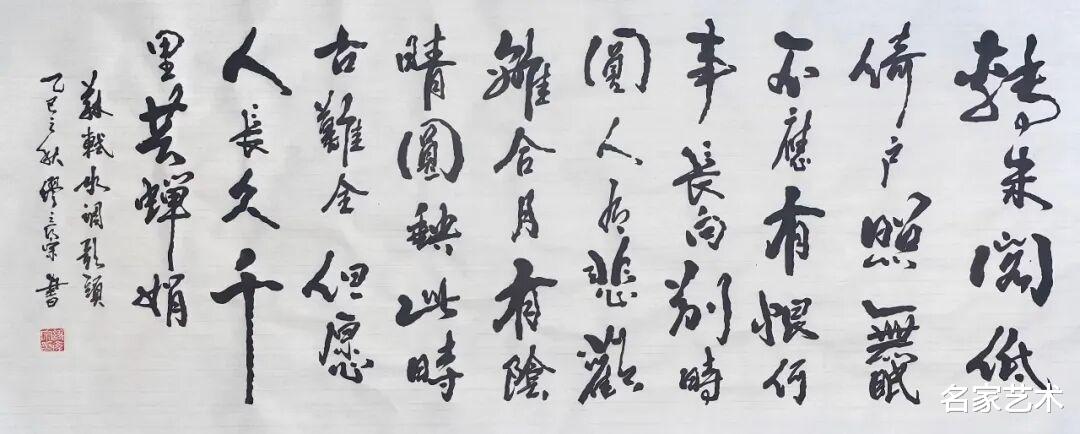 轉朱閣低
倚户照無眠
不應有恨何
事長向别時
圓人有悲歡
離合月有陰
晴圓缺此時
古難全但愿
人長久千
里共蟬娟
蘇軾水調歌頭
乙巳之秋繆書
名家艺术